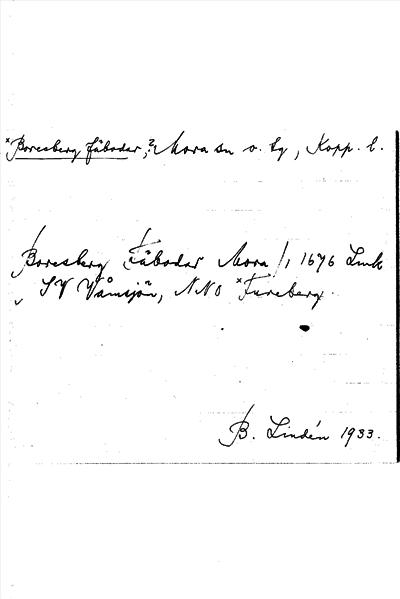 *Boresberg fäbodar,? Mora sn o. tg, Kopp. l.
Boresberg Fäbodar Mora /, 1676 Lmk
SV Våmsjön, NNO *Fureberg.
B. Lindén 1933.